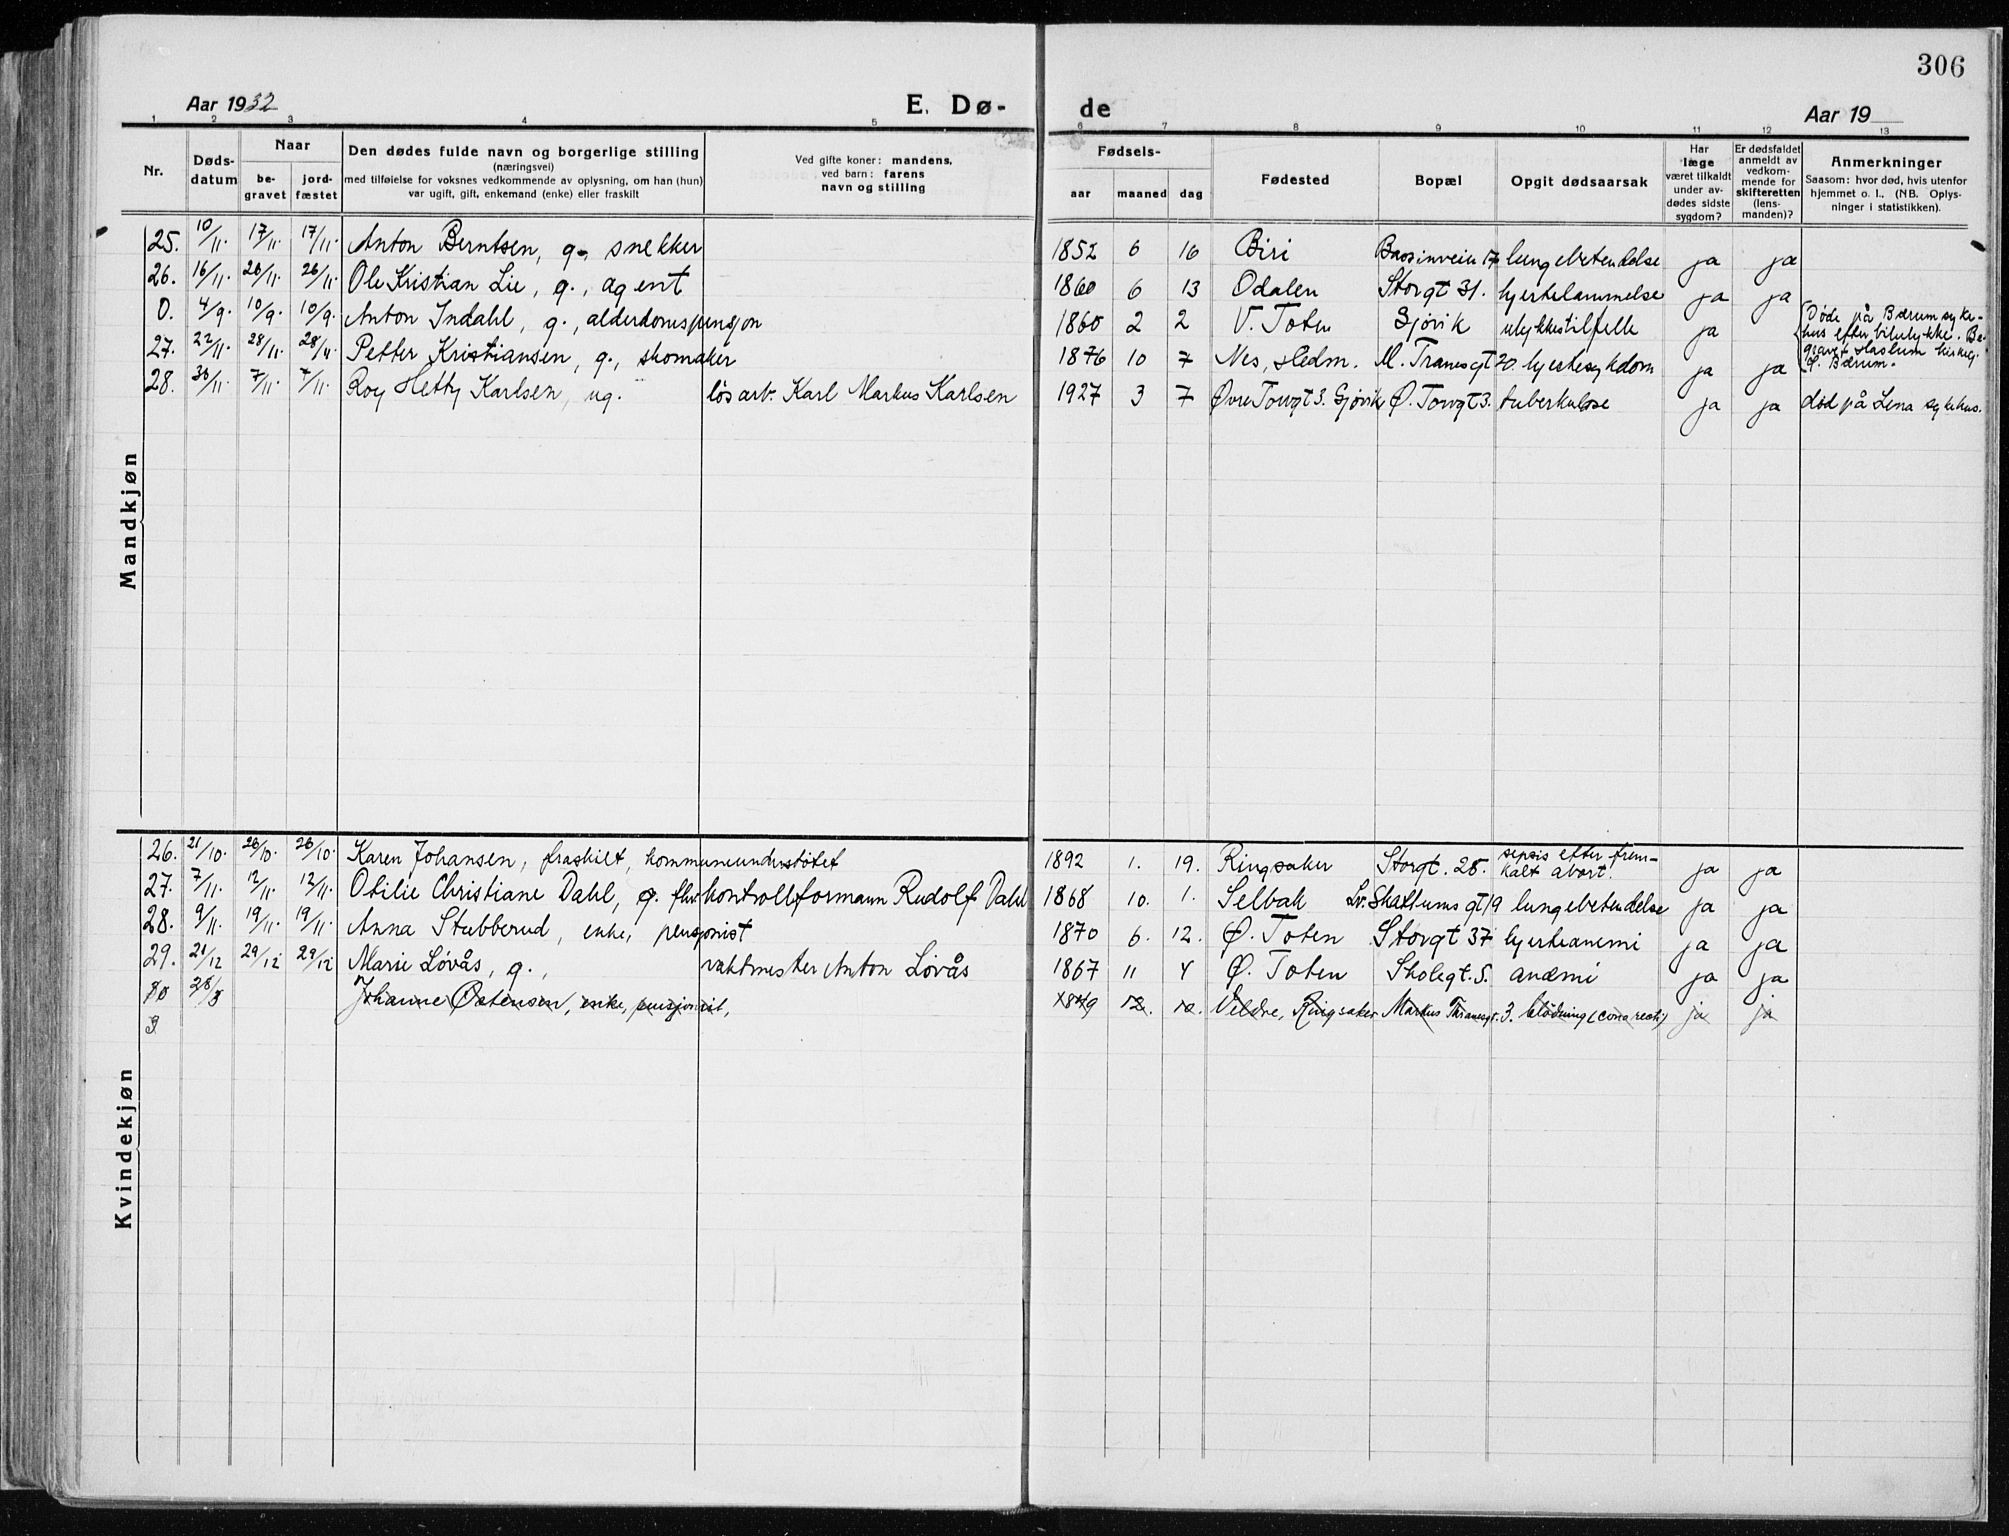 306
Aar 1932
E. Dø-
de
Aar 19
1 2 3 4 5 6 7 8 9 10 11 12 13
Nr.
Døds-
datum
Naar
be-
gravet
jord-
fæstet
Den dødes fulde navn og borgerlige stilling
(næringsvei)
med tilføielse for voksnes vedkommende av oplysning, om han (hun)
var ugift, gift, enkemand (enke) eller fraskilt
Ved gifte koner: mandens,
ved barn: farens
navn og stilling
Fødsels-
aar maaned dag
Fødested
Bopæl
Opgit dødsaarsak
Har
læge
været tilkaldt
under av-
dødes sidste
sygdom?
Er dødsfaldet
anmeldt av
vedkom-
mende for
skifteretten
(lens-
manden)?
Anmerkninger
Saasom: hvor død, hvis utenfor
hjemmet o. l., (NB. Oplys-
ninger i statistikken).
Mandkjøn
25. 10/11. 17/11. 17/11. Anton Berntsen, g., snekker 1852 6 16 Biri Bassinveien 17 lungebetendelse ja ja
26. 16/11. 26/11. 26/11. Ole Kristian Lie, g., agent 1860 6 13 Odalen Storgt 31. hjertelammelse ja ja
0. 4/9. 10/9. 10/9. Anton Indahl, g., alderdomspensjon 1860 2 2 V. Toten Gjøvik ulykkestilfelle ja
Døde på Bærum syke-
hus efter bilulykke. Be-
gravet Haslum kirkeg.
27. 22/11. 28/11. 28/11. Petter Kristiansen, g., skomaker 1876 10 7 Nes, Hedm. M. Tranesgt 20. hjertesykdom ja ja Bærum.
28. 30/11. 7/11. 7/11. Roy Hetty Karlsen, ug. løsarb. Karl Markus Karlsen 1927 3 7 Øvre Torvgt 3. Gjøvik Ø. Torvgt 3. tuberkulose ja ja død på Lena sykehus.
Kvindekjøn
26. 21/10. 26/10. 26/10. Karen Johansen, fraskilt, kommuneunderstøtet 1892 1. 19. Ringsaker Storgt. 25. sepsis efter frem-
kalt abort. ja ja
27. 7/11. 12/11. 12/11. Otilie Christiane Dahl, g. fhv. kontrollformann Rudolf Dahl 1868 10. 1. Selbak Lv. Skattumsgt 19 lungebetendelse ja ja
28. 9/11. 19/11. 19/11. Anna Stubberud, enke, pensjonist 1870 6. 12. Ø. Toten Storgt 37 hjerteanemi ja ja
29. 21/12 29/12 29/12 Marie Løvås, g., vaktmester Anton Løvås 1867 11 4 Ø. Toten Skolegt. 5. anæmi ja ja
28/8 Johanne Østensen, enke, pensjonist, 1849 12. 10. Veldre, Ringsaker Markus Thranesgt. 3. blødning ja ja
3